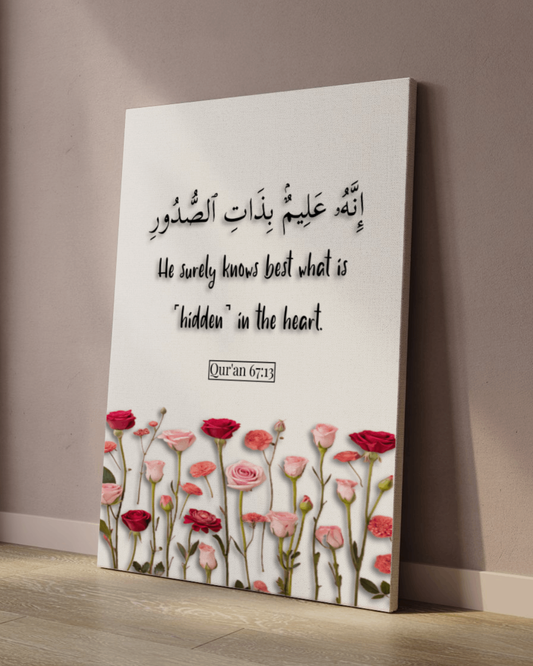 إِنَّهُۥ عَلِيمٌۢ بِذَاتِ ٱلصُّدُورِ
He surely knows best what is
⸢hidden⸣ in the heart.
Qur'an 67:13